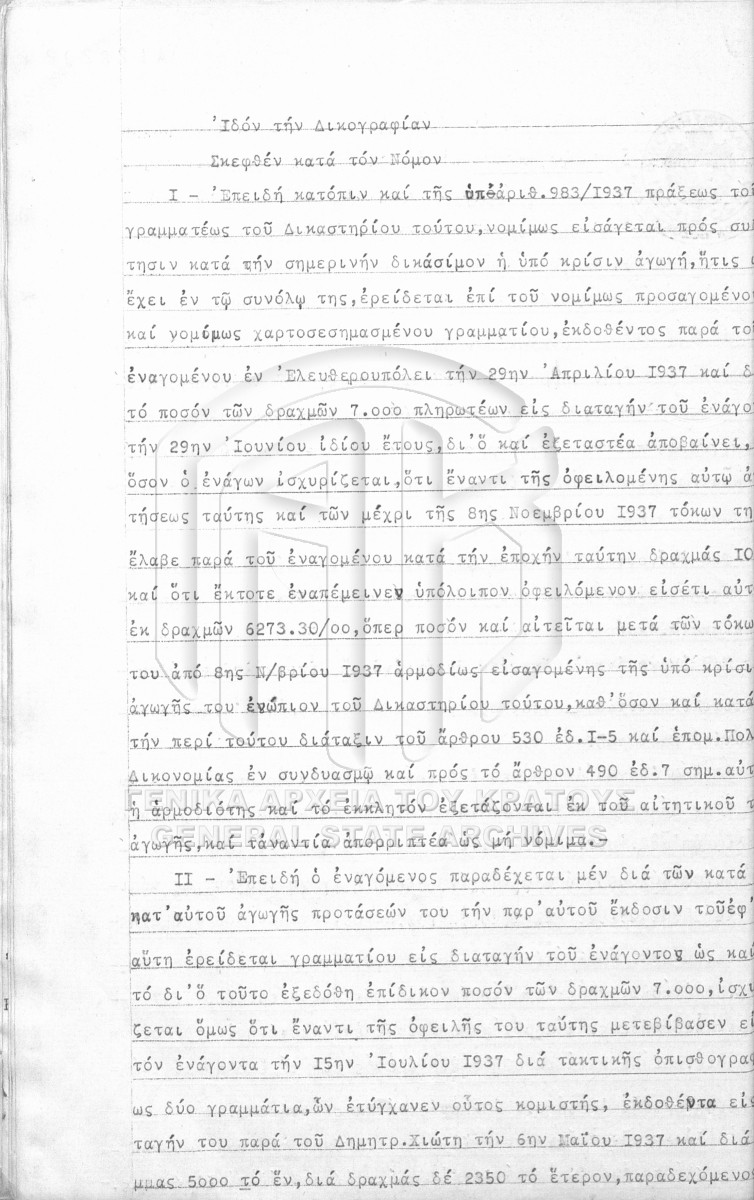 Ἰδόν τήν Δικογραφίαν
Σκεφθέν κατά τόν Νόμον
Ι - Ἐπειδή κατόπιν καί τῆς ὑπ'ἀριθ.983/Ι937 πράξεως τοῦ
γραμματέως τοῦ Δικαστηρίου τούτου,νομίμως εἰσάγεται πρός συ
τησιν κατά τήν σημερινήν δικάσιμον ἡ ὑπό κρίσιν ἀγωγή,ἥτις
ἔχει ἐν τῷ συνόλῳ της,ἐρείδεται ἐπί τοῦ νομίμως προσαγομένο
καί νομίμως χαρτοσεσημασμένου γραμματίου,ἐκδοθέντος παρά το
ἐναγομένου ἐν Ἐλευθερουπόλει τήν 29ην Ἀπριλίου Ι937 καί δ
τό ποσόν τῶν δραχμῶν 7.οοο πληρωτέων εἰς διαταγήν τοῦ ἐνάγο
τήν 29ην Ἰουνίου ἰδίου ἔτους,δι'ὅ καί ἐξεταστέα ἀποβαίνει,
ὅσον ὁ ἐνάγων ἰσχυρίζεται,ὅτι ἔναντι τῆς ὀφειλομένης αὐτῳ ἀ
τήσεως ταύτης καί τῶν μέχρι τῆς 8ης Νοεμβρίου Ι937 τόκων τη
ἔλαβε παρά τοῦ ἐναγομένου κατά τήν ἐποχήν ταύτην δραχμάς ΙΟ
καί ὅτι ἔκτοτε ἐναπέμεινεν ὑπόλοιπον ὀφειλόμενον εἰσέτι αὐτ
ἐκ δραχμῶν 6273.30/οο,ὅπερ ποσόν καί αἰτεῖται μετά τῶν τόκω
του ἀπό 8ης Ν/βρίου Ι937 ἁρμοδίως εἰσαγομένης τῆς ὑπό κρίσι
ἀγωγῆς του ἐνώπιον τοῦ Δικαστηρίου τούτου,καθ'ὅσον καί κατά
τήν περί τούτου διάταξιν τοῦ ἄρθρου 530 ἐδ.Ι-5 καί ἑπομ.Πολ
Δικονομίας ἐν συνδυασμῷ καί πρός τό ἄρθρον 490 ἐδ.7 σημ.αὐτ
ἡ ἁρμοδιότης καί τό ἐκκλητόν ἐξετάζονται ἐκ τοῦ αἰτητικοῦ τ
ΓΕΝΙΚΑ ΑΡΧΕΙΑ ΤΟΥ ΚΡΑΤΟΥΣ
GENERAL STATE ARCHIVES
ἀγωγῆς,καί τἀναντία ἀπορριπτέα ὡς μή νόμιμα.-
ΙΙ - Ἐπειδή ὁ ἐναγόμενος παραδέχεται μέν διά τῶν κατά
κατ'αὐτοῦ ἀγωγῆς προτάσεών του τήν παρ'αὐτοῦ ἔκδοσιν τοῦἐφ'
αὕτη ἐρείδεται γραμματίου εἰς διαταγήν τοῦ ἐνάγοντος ὡς καί
τό δι'ὅ τοῦτο ἐξεδόθη ἐπίδικον ποσόν τῶν δραχμῶν 7.οοο,ἰσχυ
ζεται ὅμως ὅτι ἔναντι τῆς ὀφειλῆς του ταύτης μετεβίβασεν εἰ
τόν ἐνάγοντα τήν Ι5ην Ἰουλίου Ι937 διά τακτικῆς ὀπισθογραφ
ως δύο γραμμάτια,ὧν ἐτύγχανεν οὗτος κομιστής, ἐκδοθέντα εἰς
ταγήν του παρά τοῦ Δημητρ.Χιώτη τήν 6ην Μαΐου Ι937 καί διά
μμας 5οοο τό ἕν,διά δραχμάς δέ 2350 τό ἕτερον,παραδεχόμενος